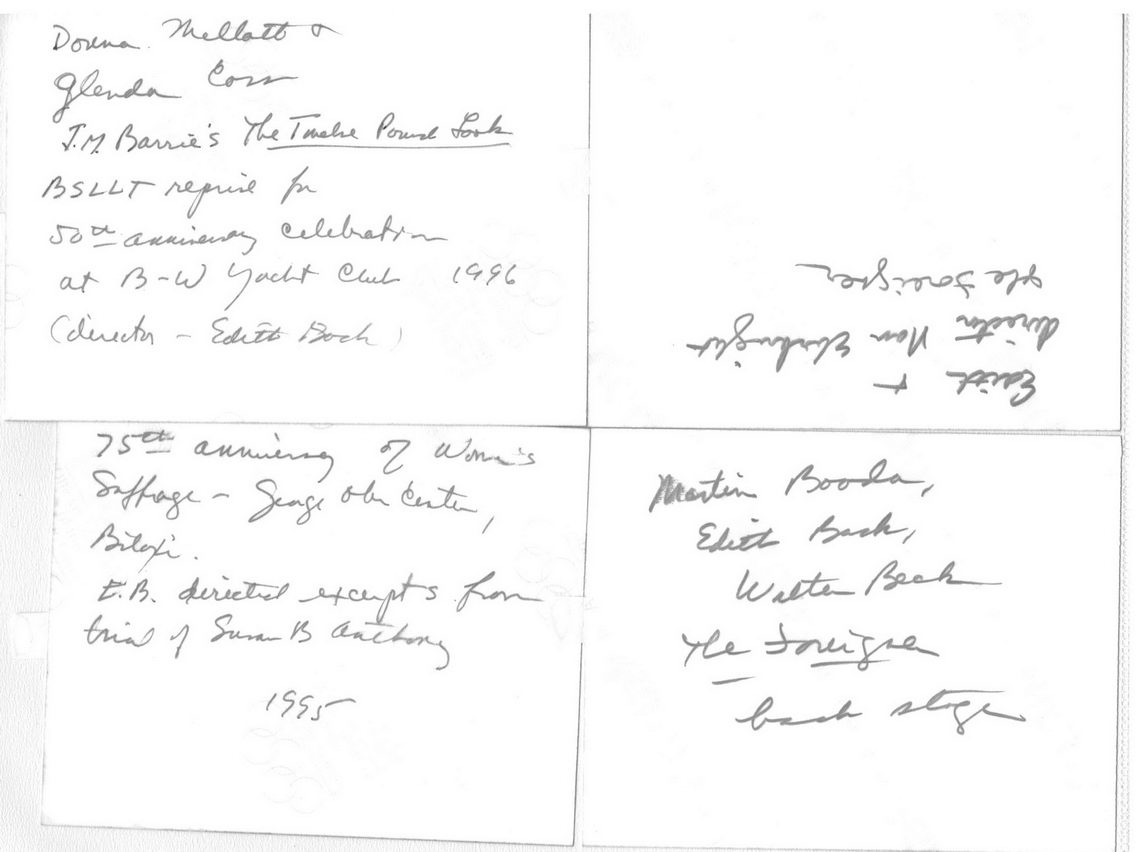 Donna Mellott &
Glenda Coss
J.M. Barrie's The Twelve Pound Look
BSLLT reprise for
50th anniversary celebration
at B-W Yacht Club 1996
(director - Edith Back)
Edith &
director Nan
The Foreigner
75th anniversary of Women's
Suffrage - George Ohr Center,
Biloxi.
E.B. directed excerpts from
trial of Susan B Anthony
1995
Martin Booda,
Edith Back,
Walter Beck
The Foreigner
back stage